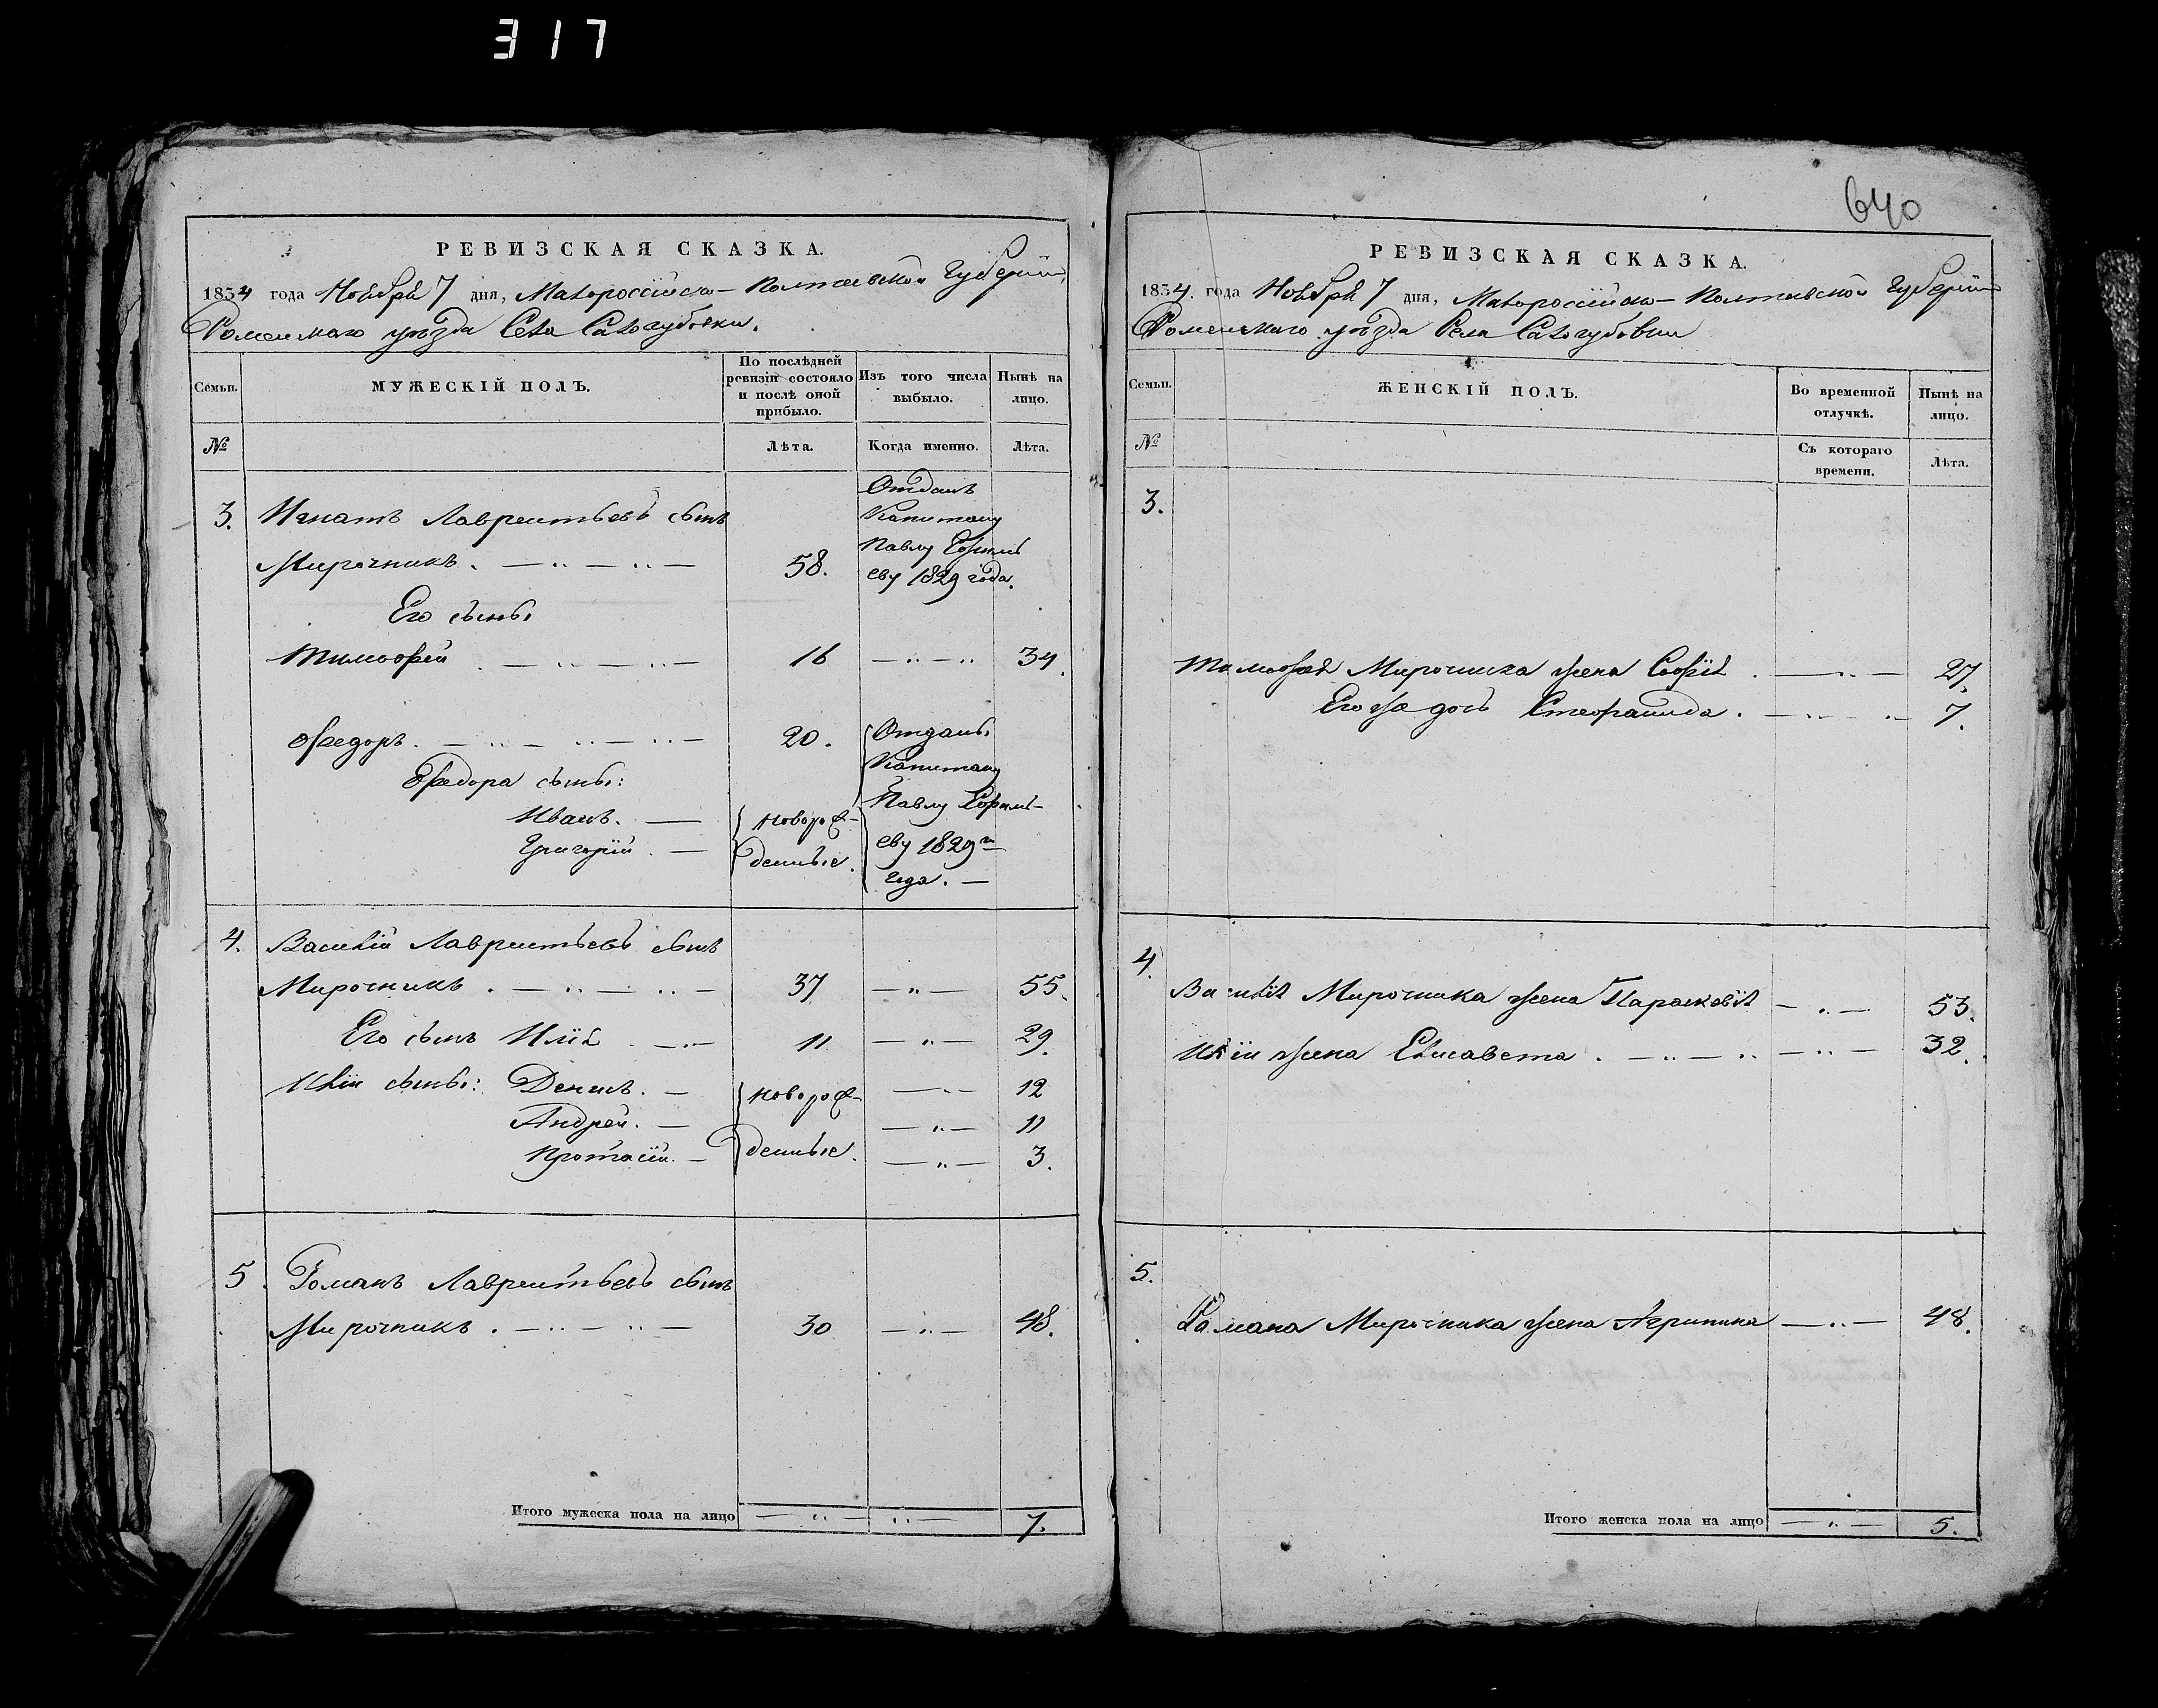 317
640
РЕВИЗСКАЯ СКАЗКА.
1834 года Ноября 7 дня, Малороссійско-Полтавской Губерніи
Роменскаго уѣзда Села Салогубовки.
Семьи.
МУЖЕСКІЙ ПОЛЪ.
По послѣдней ревизіи состояло и послѣ оной прибыло.
Изъ того числа выбыло.
Нынѣ на лицо.
№
Лѣта.
Когда именно.
Лѣта.
3. Игнатъ Лаврентьевъ сынъ
Мирочникъ. 58. Отданъ Капитану Павлу еву 1829 года.
Его сыны
Тимофей 16 34.
Федоръ. 20. Отданы Капитану
Федора сыны:
Иванъ. новорож- Павлу
Григорій. денные. еву 1829го года.
4. Василій Лаврентьевъ сынъ
Мирочникъ. 37 55.
Его сынъ Илія 11 29.
Иліи сыны: Денисъ. новорож- 12
Андрей. 11
Протасій. денные. 3.
5. Романъ Лаврентьевъ сынъ
Мирочникъ. 30 48.
Итого мужеска пола на лицо 7.
РЕВИЗСКАЯ СКАЗКА.
1834. года Ноября 7 дня, Малороссійско-Полтавской Губерніи
Роменскаго уѣзда Села Салогубовки
Семьи.
ЖЕНСКІЙ ПОЛЪ.
Во временной отлучкѣ.
Нынѣ на лицо.
№
Съ котораго времени.
Лѣта.
3.
Тимофея Мирочника жена Софія. 27.
Его же дочь Стефанида. 7.
4.
Василія Мирочника жена Параскевія 53.
Иліи жена Елисавета. 32.
5.
Романа Мирочника жена Агрипина 48.
Итого женска пола на лицо 5.